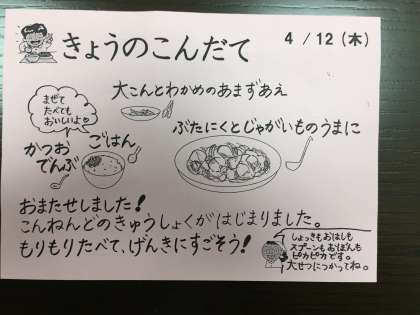 きょうのこんだて
4/12(木)
大こんとわかめのあまずあえ
まぜて
たべても
おいしいよ
ごはん
かつお
でんぶ
ぶたにくとじゃがいものうまに
おまたせしました!
こんねんどのきゅうしょくがはじまりました。
もりもりたべて、げんきにすごそう!
しょっきもおはしも
スプーンもおぼんも
ピカピカです。
大せつにつかってね。